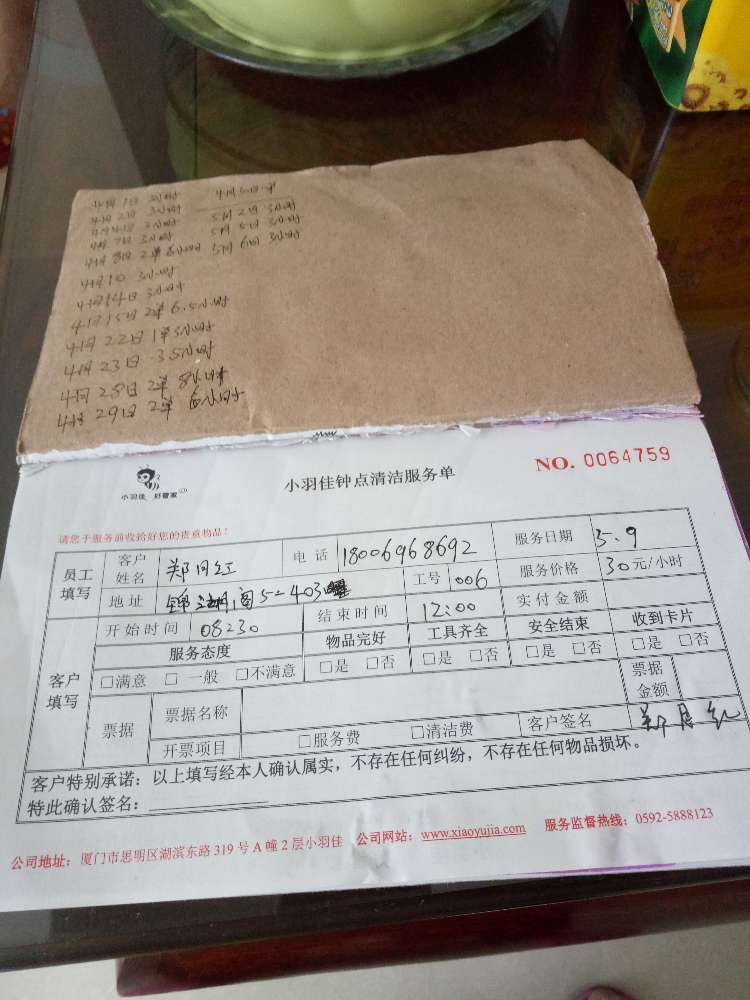 4月1日 3小时
4月2日 3小时
4月4日 3小时
4月7日 3小时
4月8日 2单 6小时
4月10 3小时
4月14日 3小时
4月15日 2单 6.5小时
4月22日 1单 3小时
4月23日 3.5小时
4月28日 2单 8小时
4月29日 2单 6小时
4月30日 1单
5月2日 3小时
5月5日 3小时
5月6日 3小时
小羽佳 好管家
小羽佳钟点清洁服务单
NO. 0064759
请您于服务前收拾好您的贵重物品!
员工填写 客户姓名 郑月红 电话 18006968692 服务日期 5.9
地址 锦湖阁52-403 工号 006 服务价格 30元/小时
客户填写 开始时间 08:30 结束时间 12:00 实付金额
服务态度 物品完好 工具齐全 安全结束 收到卡片
□满意 □一般 □不满意 □是 □否 □是 □否 □是 □否 □是 □否
票据 票据名称 票据金额
开票项目 □服务费 □清洁费 客户签名 郑月红
客户特别承诺:以上填写经本人确认属实,不存在任何纠纷,不存在任何物品损坏。
特此确认签名:
公司地址:厦门市思明区湖滨东路319号A幢2层小羽佳 公司网站:www.xiaoyujia.com 服务监督热线:0592-5888123